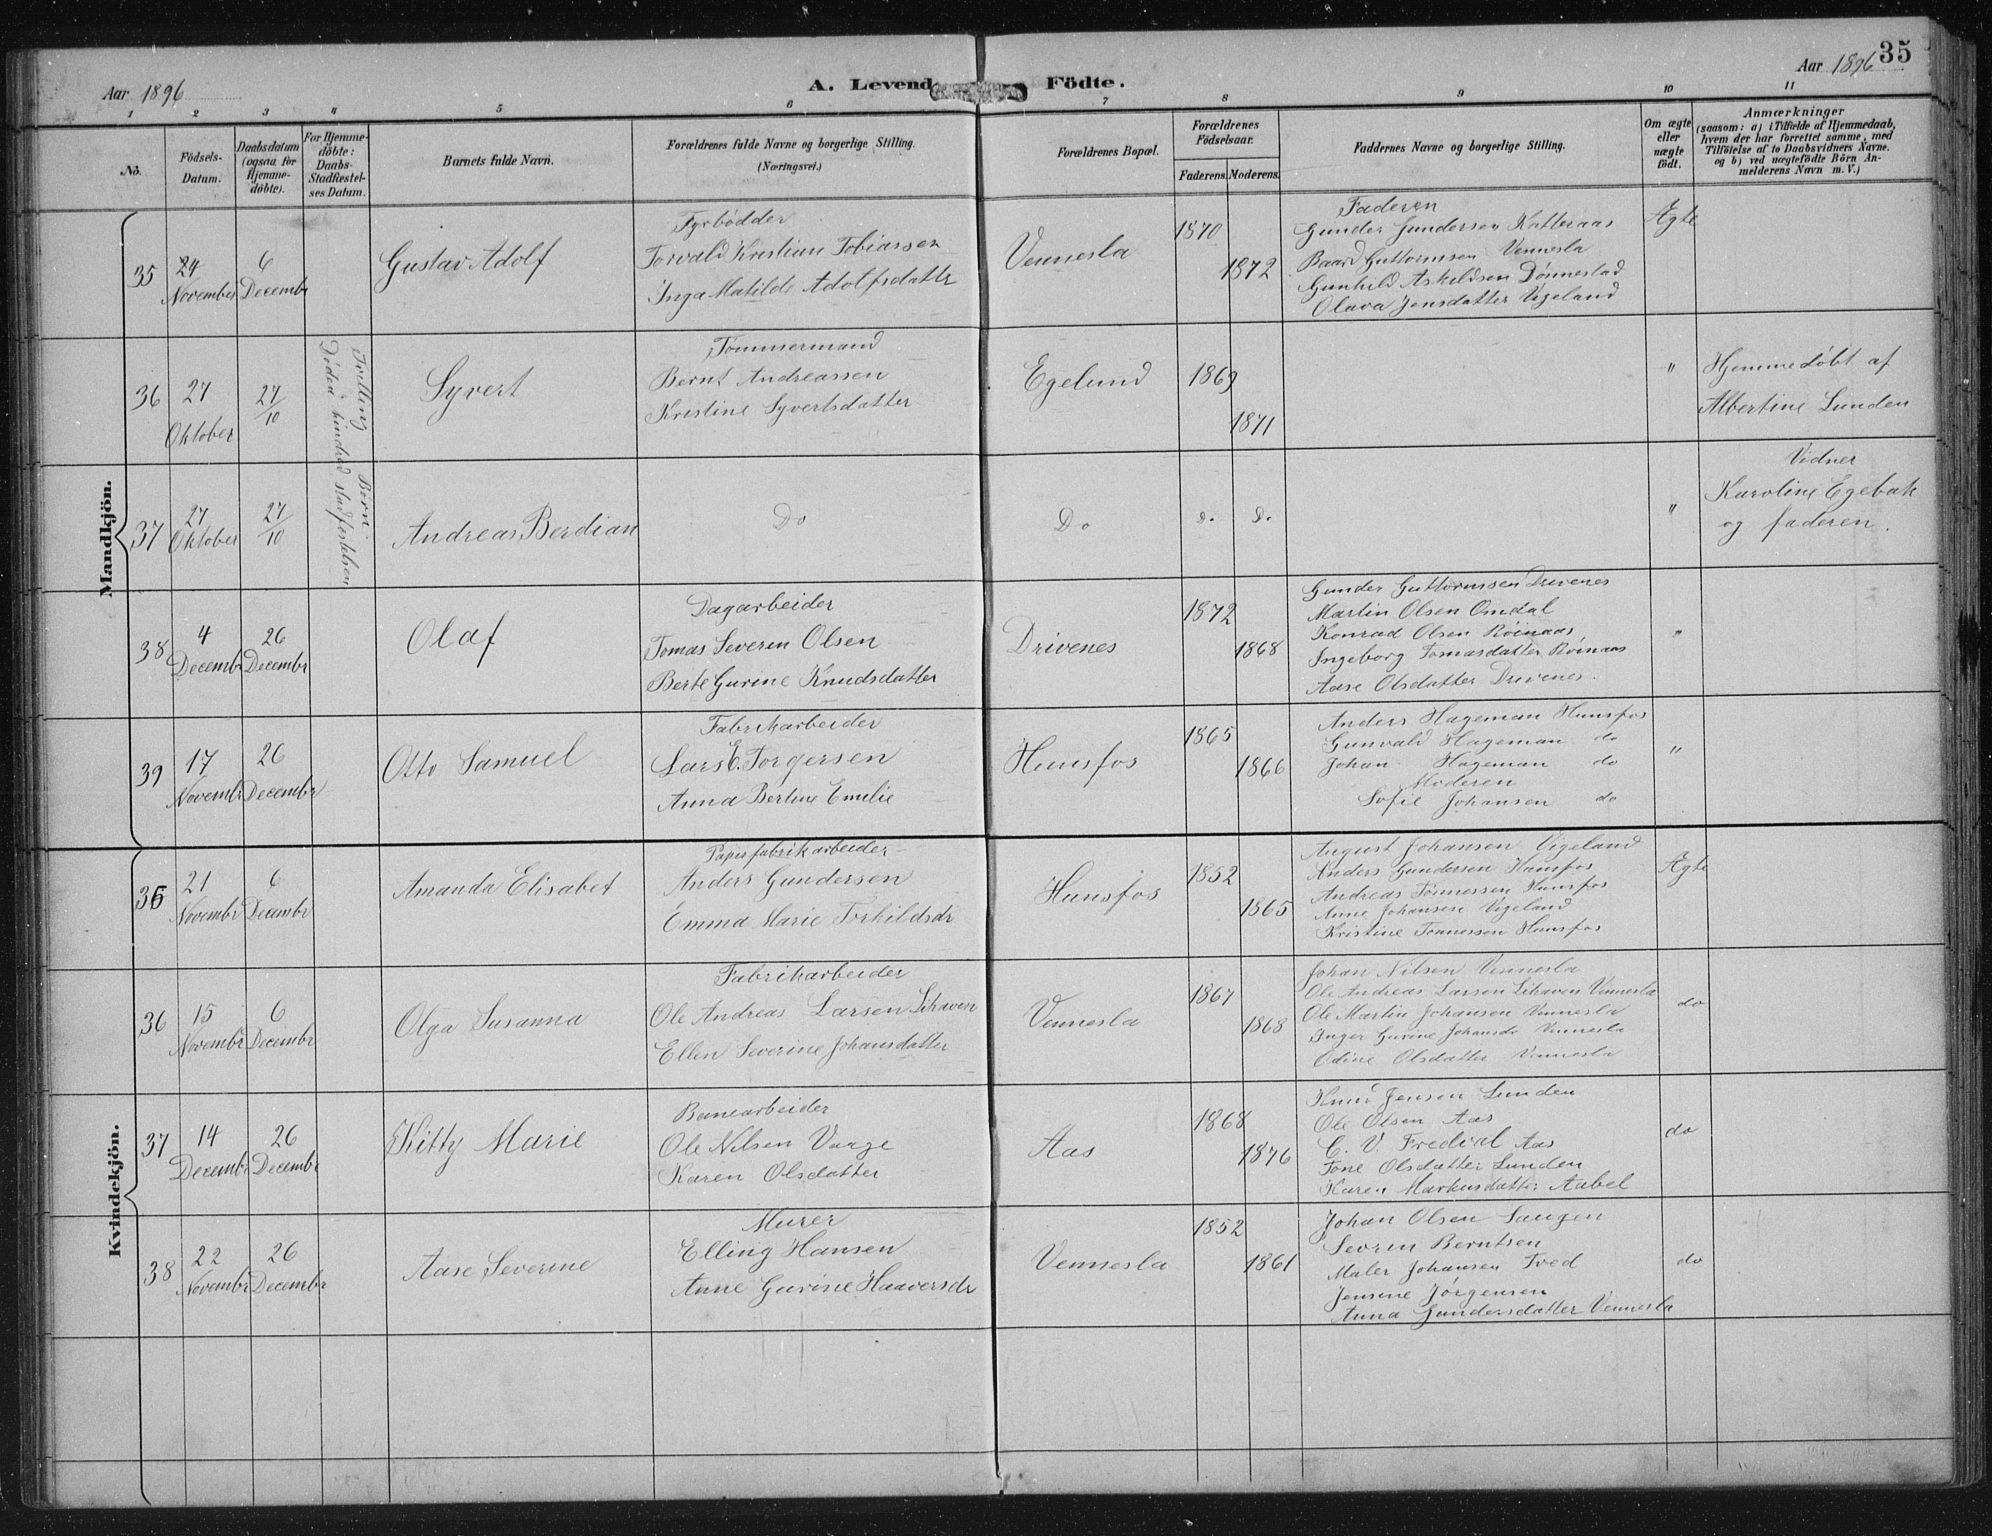 35
Aar 1896
A. Levende Födte.
Aar 1896
1 2 3 4 5 6 7 8 9 10 11
No.
Födsels-Datum.
Daabsdatum (ogsaa for Hjemme-döbte).
For Hjemme-döbte: Daabs-Stadfæstel-ses Datum.
Barnets fulde Navn.
Forældrenes fulde Navne og borgerlige Stilling.
(Næringsvei.)
Forældrenes Bopæl.
Forældrenes Födselsaar.
Faderens. Moderens.
Faddernes Navne og borgerlige Stilling.
Om ægte eller uægte födt.
Anmærkninger
(saasom: a) i Tilfælde af Hjemmedaab,
hvem der har forrettet samme, med
Tilföielse af to Daabsvidners Navne.
og b) ved uægtefödte Börn An-
melderens Navn m. V.)
Mandkjön.
35
24 November
6 Decembr
Gustav Adolf
Fyrbødder
Torvald Kristian Tobiassen
Inga Matilde Adolfsdatter
Vennesla
1870
1872
Faderen
Gunder Gundersen Katteraas
Baard Guttormsen Vennesla
Gunhild Askildsen Dønnestad
Olava Jensdatter Vigeland
Ægte
36
27 Oktober
27/10
Tvilling Børn
Døde
Syvert
Tømmermand
Bernt Andreassen
Kristine Syvertsdatter
Egelund
1869
1871
"
Hjemmedøbt af
Albertine Lunden
37
27 Oktober
27/10
Andreas Berdian
Do
Do
Do
Do
"
Vidner
Karoline Egebak
og faderen.
38
4 Decembr
26 Decembr
Olaf
Dagarbeider
Tomas Severin Olsen
Berte Gurine Knudsdatter
Drivenes
1872
1868
Gunder Guttormsen Drivenes
Martin Olsen Omdal
Konrad Olsen Røinaas
Ingeborg Tomasdatter Røinaas
Aase Olsdatter Drivenes.
"
39
17 Novembr
26 Decembr
Otto Samuel
Fabrikarbeider
Lars E. Torgersen
Anna Bertine Emilie
Hunsfos
1865
1866
Anders Hageman Hunsfos
Gunvald Hageman do
Johan Hageman do
Moderen
Sofie Johansen do
"
Kvindekjön.
35
21 Novembr
6 Decembr
Amanda Elisabet
Papirfabrikarbeider
Anders Gundersen
Emma Marie Torkildsdr
Hunsfos
1852
1865
August Johansen Vigeland
Anders Gundersen Hunsfos
Andreas Tønnessen Hunsfos
Anne Johansen Vigeland
Kristine Tønnessen Hunsfos
Ægte
36
15 Novembr
6 Decembr
Olga Susanna
Fabrikarbeider
Ole Andreas Larsen Lihaven
Ellen Severine Johansdatter
Vennesla
1867
1868
Johan Nilsen Vennesla
Ole Andreas Larsen Lihaven Vennesla
Ole Martin Johansen Vennesla
Inger Gurine Johansdr Vennesla
Edine Olsdatter Vennesla
do
37
14 Decembr
26 Decembr
Kitty Marie
Banearbeider
Ole Nilsen Vaage
Karen Olsdatter
Aas
1868
1876
Knud Jensen Lunden
Ole Olsen Aas
C. V. Aas
Tone Olsdatter Lunden
Karen Markusdatter Aabel
do
38
22 Novembr
26 Decembr
Aase Severine
Murer
Elling Hansen
Anne Gurine Haaversdr
Vennesla
1852
1861
Johan Olsen Saugen
Sevrin Berntsen
Maler Johansen Tved
Jensine Jørgensen
Anna Gundersdatter Vennesla
do